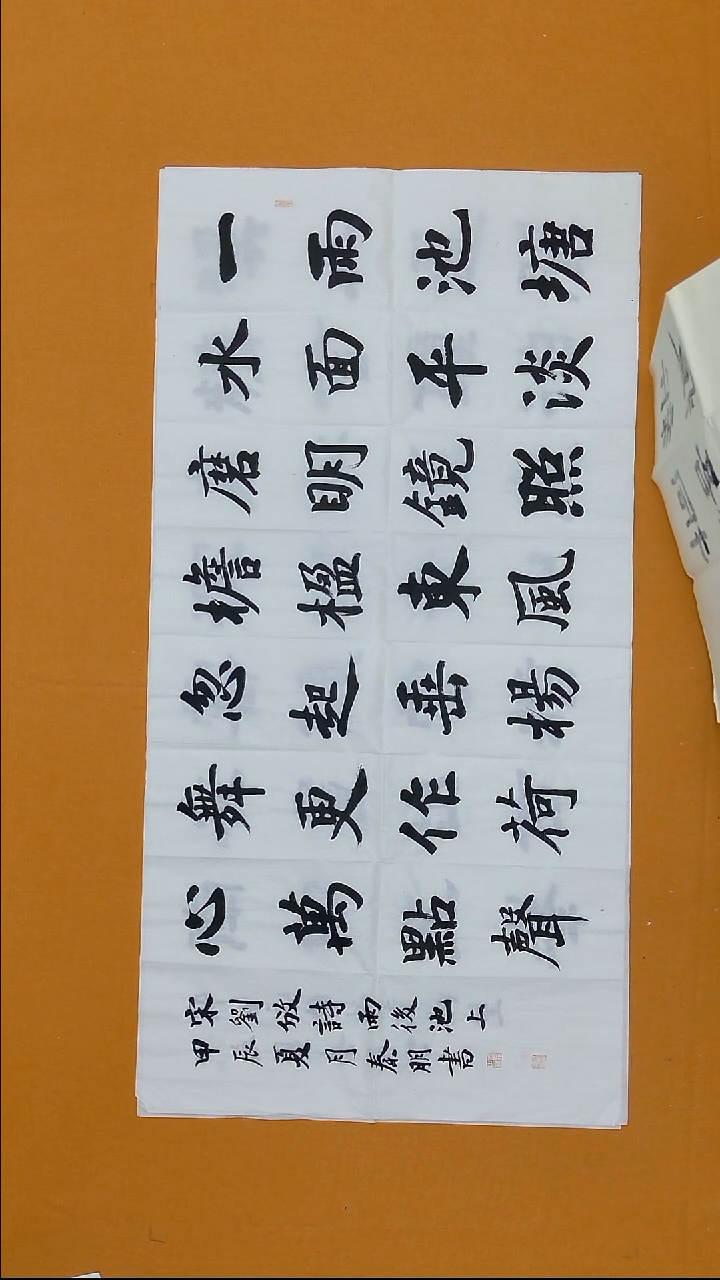 一雨池塘
水面平淡
磨明鏡照
檐楹東風
忽起垂楊
舞更作荷
心萬點聲
宋劉攽詩雨後池上
甲辰夏月秦朋書